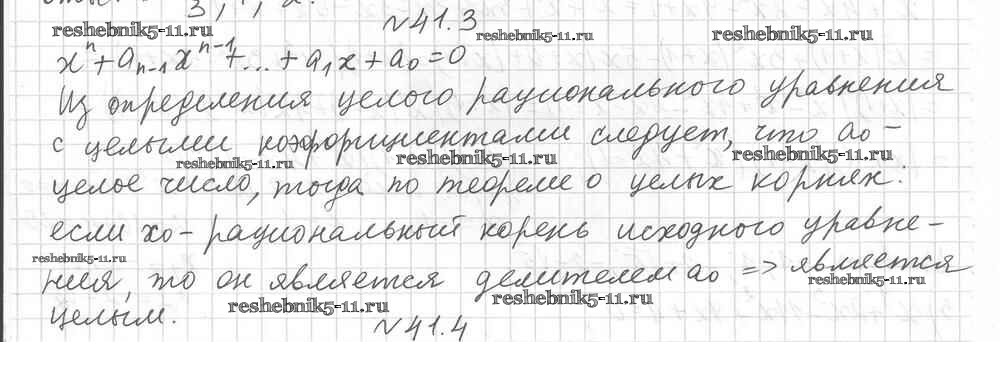 №41.3
reshebnik5-11.ru reshebnik5-11.ru reshebnik5-11.ru
xⁿ + aₙ₋₁xⁿ⁻¹ + ... + a₁x + a₀ = 0
Из определения целого рационального уравнения
с целыми коэффициентами следует, что a₀ –
reshebnik5-11.ru reshebnik5-11.ru reshebnik5-11.ru
целое число, тогда по теореме о целых корнях:
если x₀ – рациональный корень исходного уравне–
reshebnik5-11.ru
ния, то он является делителем a₀ => является
reshebnik5-11.ru reshebnik5-11.ru reshebnik5-11.ru
целым.
№41.4